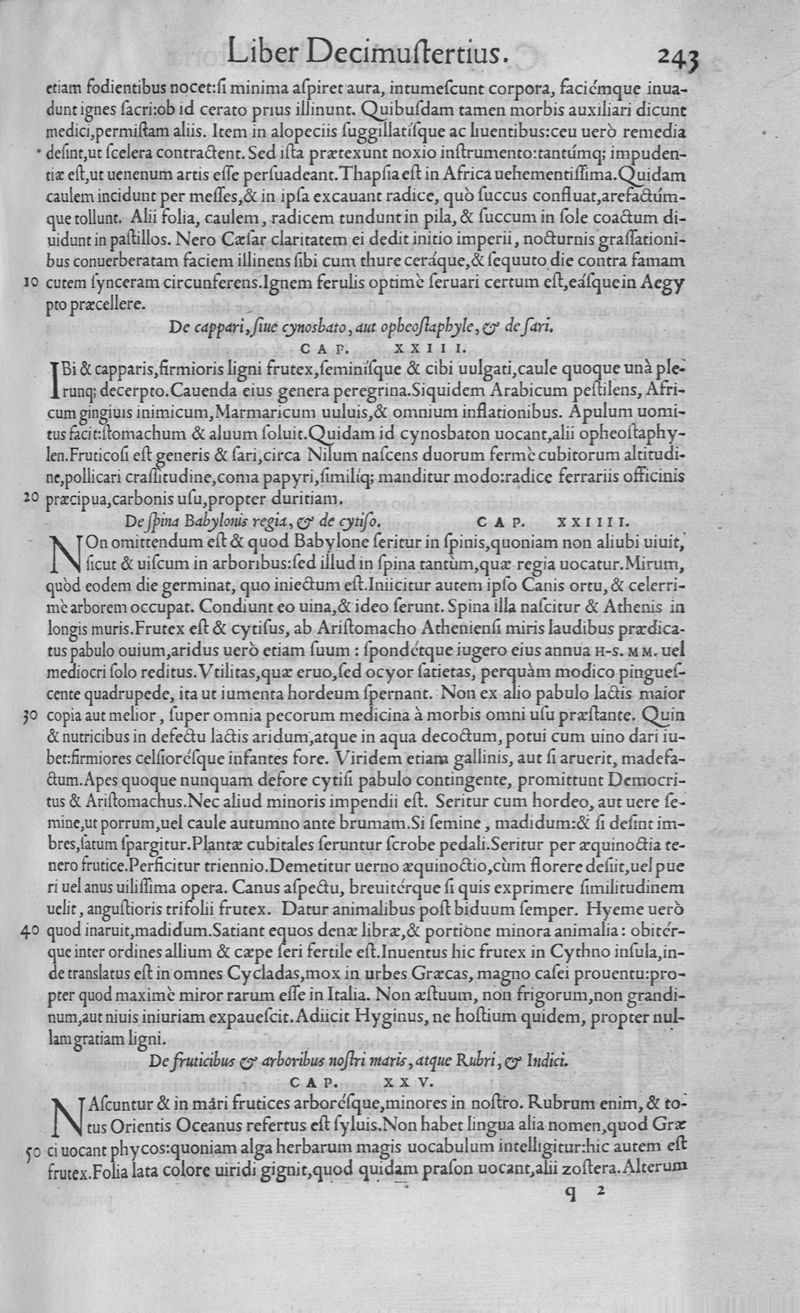 Liber Decimuſtertius. 243
etiam fodientibus nocet:ſi minima aſpiret aura, intumeſcunt corpora, faciémque inua-
dunt ignes ſacri:ob id cerato prius illinunt. Quibuſdam tamen morbis auxiliari dicunt
medici,permiſtam aliis. Item in alopeciis ſuggillatiſque ac liuentibus:ceu uerò remedia
* deſint,ut ſcelera contractent. Sed iſta prætexunt noxio inſtrumento:tantúmq; impuden-
tiæ eſt,ut uenenum artis eſſe perſuadeant.Thapſia eſt in Africa uehementiſſima.Quidam
caulem incidunt per meſſes,& in ipſa excauant radice, quò ſuccus confluat,arefactúm-
que tollunt. Alii folia, caulem, radicem tundunt in pila, & ſuccum in ſole coactum di-
uidunt in paſtillos. Nero Cæſar claritatem ei dedit initio imperii, nocturnis graſſationi-
bus conuerberatam faciem illinens ſibi cum thure ceráque,& ſequuto die contra famam
10 cutem ſynceram circunferens.Ignem ferulis optimè ſeruari certum eſt,eáſque in Aegy
pto præcellere.
De cappari, ſiue cynosbato, aut opheoſtaphyle, & de ſari.
CAP. XXIII.
IBi & capparis,firmioris ligni frutex,ſeminiſque & cibi uulgati,caule quoque unà ple-
runq; decerpto.Cauenda eius genera peregrina.Siquidem Arabicum peſtilens, Afri-
cum gingiuis inimicum,Marmaricum uuluis,& omnium inflationibus. Apulum uomi-
tus facit:ſtomachum & aluum ſoluit.Quidam id cynosbaton uocant,alii opheoſtaphy-
len.Fruticoſi eſt generis & ſari,circa Nilum naſcens duorum fermè cubitorum altitudi-
ne,pollicari craſſitudine,coma papyri,ſimilíq; manditur modo:radice ferrariis officinis
20 præcipua,carbonis uſu,propter duritiam.
De ſpina Babylonis regia, & de cytiſo. CAP. XXIIII.
NOn omittendum eſt & quod Babylone ſeritur in ſpinis,quoniam non aliubi uiuit,
ſicut & uiſcum in arboribus:ſed illud in ſpina tantùm,quæ regia uocatur.Mirum,
quòd eodem die germinat, quo iniectum eſt.Iniicitur autem ipſo Canis ortu, & celerri-
mè arborem occupat. Condiunt eo uina,& ideo ſerunt. Spina illa naſcitur & Athenis in
longis muris.Frutex eſt & cytiſus, ab Ariſtomacho Athenienſi miris laudibus prædica-
tus pabulo ouium,aridus uerò etiam ſuum : ſpondétque iugero eius annua H-S. M M. uel
mediocri ſolo reditus.Vtilitas,quæ eruo,ſed ocyor ſatietas, perquàm modico pingueſ-
cente quadrupede, ita ut iumenta hordeum ſpernant. Non ex alio pabulo lactis maior
30 copia aut melior, ſuper omnia pecorum medicina à morbis omni uſu præſtante. Quin
& nutricibus in defectu lactis aridum,atque in aqua decoctum, potui cum uino dari iu-
bet:firmiores celſioréſque infantes fore. Viridem etiam gallinis, aut ſi aruerit, madefa-
ctum.Apes quoque nunquam defore cytiſi pabulo contingente, promittunt Democri-
tus & Ariſtomachus.Nec aliud minoris impendii eſt. Seritur cum hordeo, aut uere ſe-
mine,ut porrum,uel caule autumno ante brumam.Si ſemine, madidum:& ſi deſint im-
bres,ſatum ſpargitur.Plantæ cubitales ſeruntur ſcrobe pedali.Seritur per æquinoctia te-
nero frutice.Perficitur triennio.Demetitur uerno æquinoctio,cùm florere deſiit,uel pue
ri uel anus uiliſſima opera. Canus aſpectu, breuitérque ſi quis exprimere ſimilitudinem
uelit, anguſtioris trifolii frutex. Datur animalibus poſt biduum ſemper. Hyeme uerò
40 quod inaruit,madidum.Satiant equos denæ libræ,& portione minora animalia: obitér-
que inter ordines allium & cæpe ſeri fertile eſt.Inuentus hic frutex in Cythno inſula,in-
de translatus eſt in omnes Cycladas,mox in urbes Græcas, magno caſei prouentu:pro-
pter quod maximè miror rarum eſſe in Italia. Non æſtuum, non frigorum,non grandi-
num,aut niuis iniuriam expaueſcit.Adiicit Hyginus, ne hoſtium quidem, propter nul-
lam gratiam ligni.
De fruticibus & arboribus noſtri maris, atque Rubri, & Indici.
CAP. XXV.
NAſcuntur & in mári frutices arboréſque,minores in noſtro. Rubrum enim, & to-
tus Orientis Oceanus refertus eſt ſyluis.Non habet lingua alia nomen,quod Græ
50 ci uocant phycos:quoniam alga herbarum magis uocabulum intelligitur:hic autem eſt
frutex.Folia lata colore uiridi gignit,quod quidam praſon uocant,alii zoſtera.Alterum
q 2